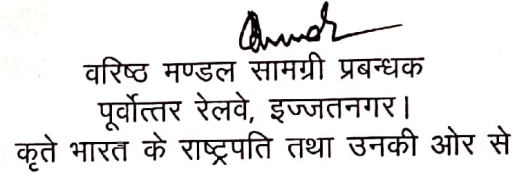 वरिष्ठ मण्डल सामग्री प्रबन्धक
पूर्वोत्तर रेलवे, इज्जतनगर।
कृते भारत के राष्ट्रपति तथा उनकी ओर से